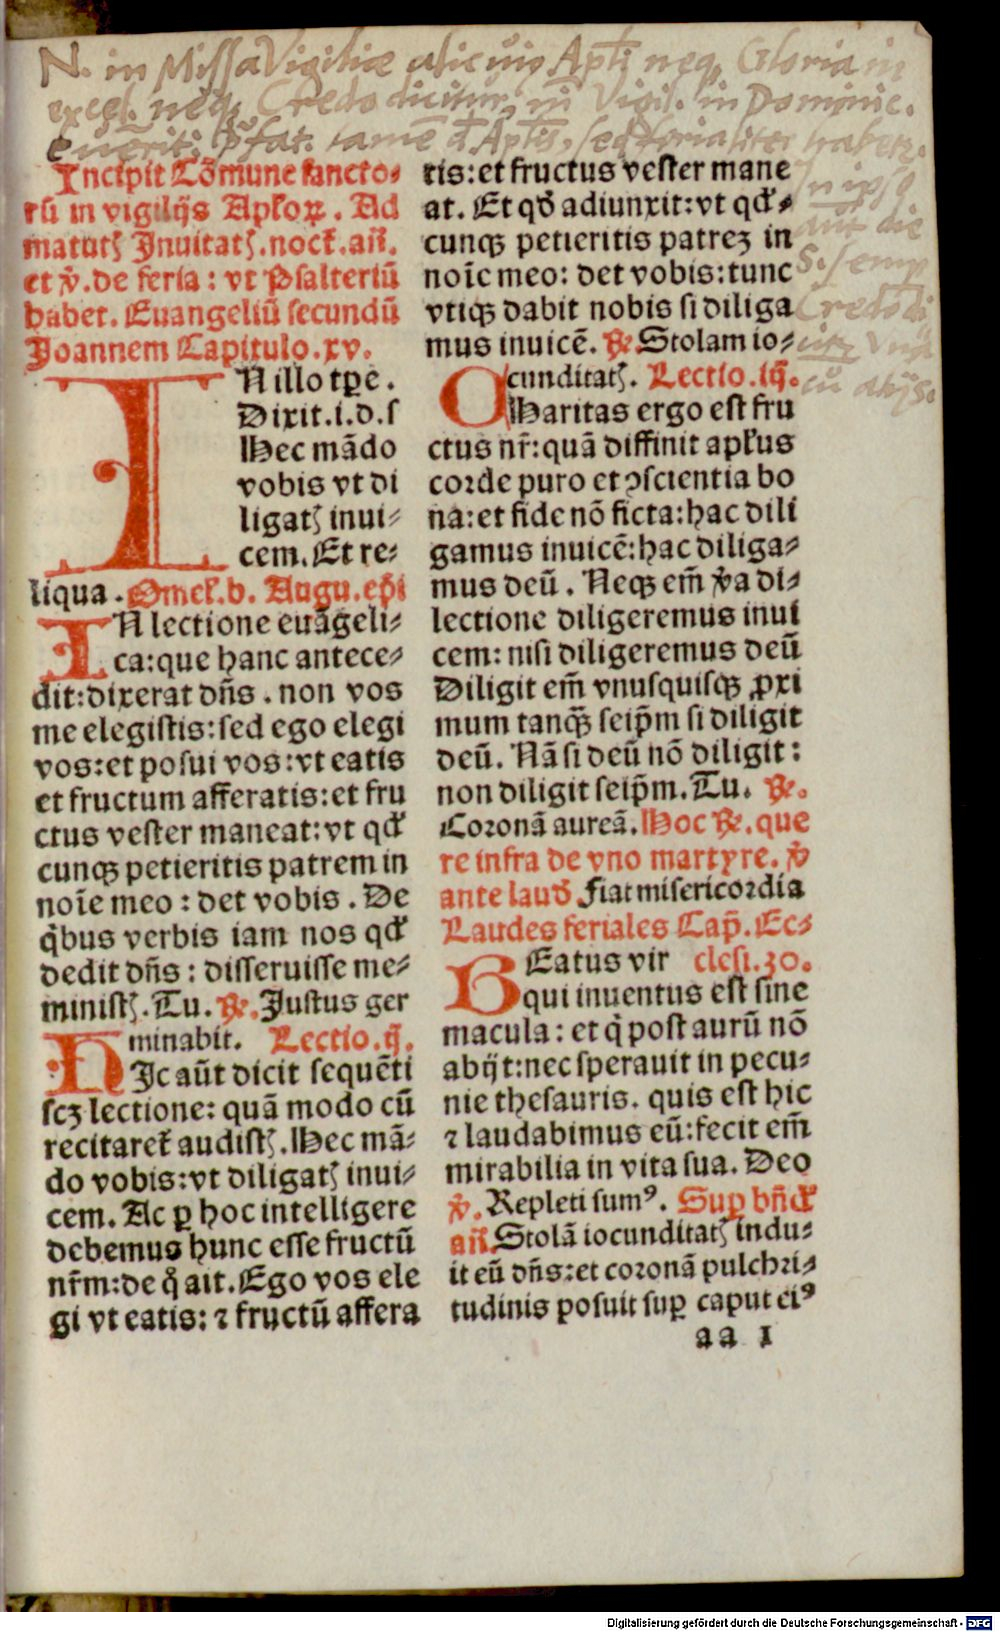 N. in Missa Vigiliæ alicuiꝰ Apl̄i neq₃ Gloria in
excel. neq₃ Credo dicitur, ni Vigil. in Dominic.
euēerit. P̄fat. tamē d̄ Aptīs,
In ipso
aut̄ die
S. semp
Credo di
citꝛ vna
cū alijs.
Incipit Cōmune sancto⸗
rū in vigilijs Apl̓oꝝ. Ad
matutꝭ Inuitatꝭ. noct̓. an̄.
et ꝟ. de feria: vt Psalteriū
habet. Euangeliū secundū
Joannem Capitulo. xv.
IN illo tꝑe.
Dixit. i. d. s
Hec mādo
vobis vt di
ligatꝭ inui⸗
cem. Et re⸗
liqua. Omel̓. b. Augu. ep̄i
IN lectione euāgeli⸗
ca: que hanc antece⸗
dit: dixerat dn̄s. non vos
me elegistis: sed ego elegi
vos: et posui vos: vt eatis
et fructum afferatis: et fru
ctus vester maneat: vt qd̓
cunqꝫ petieritis patrem in
noīe meo: det vobis. De
q̇bus verbis iam nos qd̓
dedit dn̄s: disseruisse me⸗
ministꝭ. Tu. ℞. Justus ger
minabit. Lectio. ij.
HJc aūt dicit sequēti
scꝫ lectione: quā modo cū
recitaret̓ audistꝭ. Hec mā⸗
do vobis: vt diligatꝭ inui⸗
cem. Ac ꝑ hoc intelligere
debemus hunc esse fructū
nr̄m: de q̊ ait. Ego vos ele
gi vt eatis: ⁊ fructū affera
tis: et fructus vester mane
at. Et qđ adiunxit: vt qd̓⸗
cunqꝫ petieritis patreꝫ in
noīe meo: det vobis: tunc
vtiqꝫ dabit nobis si diliga
mus inuicē. ℞. Stolam io⸗
cunditatꝭ. Lectio. iij.
CHaritas ergo est fru
ctus nr̄: quā diffinit apl̓us
corde puro et ↄscientia bo
na: et fide nō ficta: hac dili
gamus inuicē: hac diliga⸗
mus deū. Neqꝫ em̄ ꝟa di⸗
lectione diligeremus inui
cem: nisi diligeremus deū
Diligit em̄ vnusquisqꝫ ꝓxi
mum tanqꝫ̄ seip̄m si diligit
deū. Nā si deū nō diligit:
non diligit seip̄m. Tu. ℞.
Coronā aureā. Hoc ℞. que
re infra de vno martyre. ꝟ
ante laud̓ Fiat misericordia
Laudes feriales Cap̄. Ec⸗
BEatus vir clesi. 30.
qui inuentus est sine
macula: et q̇ post aurū nō
abijt: nec sperauit in pecu⸗
nie thesauris. quis est hic
⁊ laudabimus eū: fecit em̄
mirabilia in vita sua. Deo
ꝟ. Repleti sumꝰ. Suꝑ bn̄d̓
an̄. Stolā iocunditatꝭ indu⸗
it eū dn̄s: et coronā pulchri⸗
tudinis posuit suꝑ caput eiꝰ
aa 1
Digitalisierung gefördert durch die Deutsche Forschungsgemeinschaft - DFG